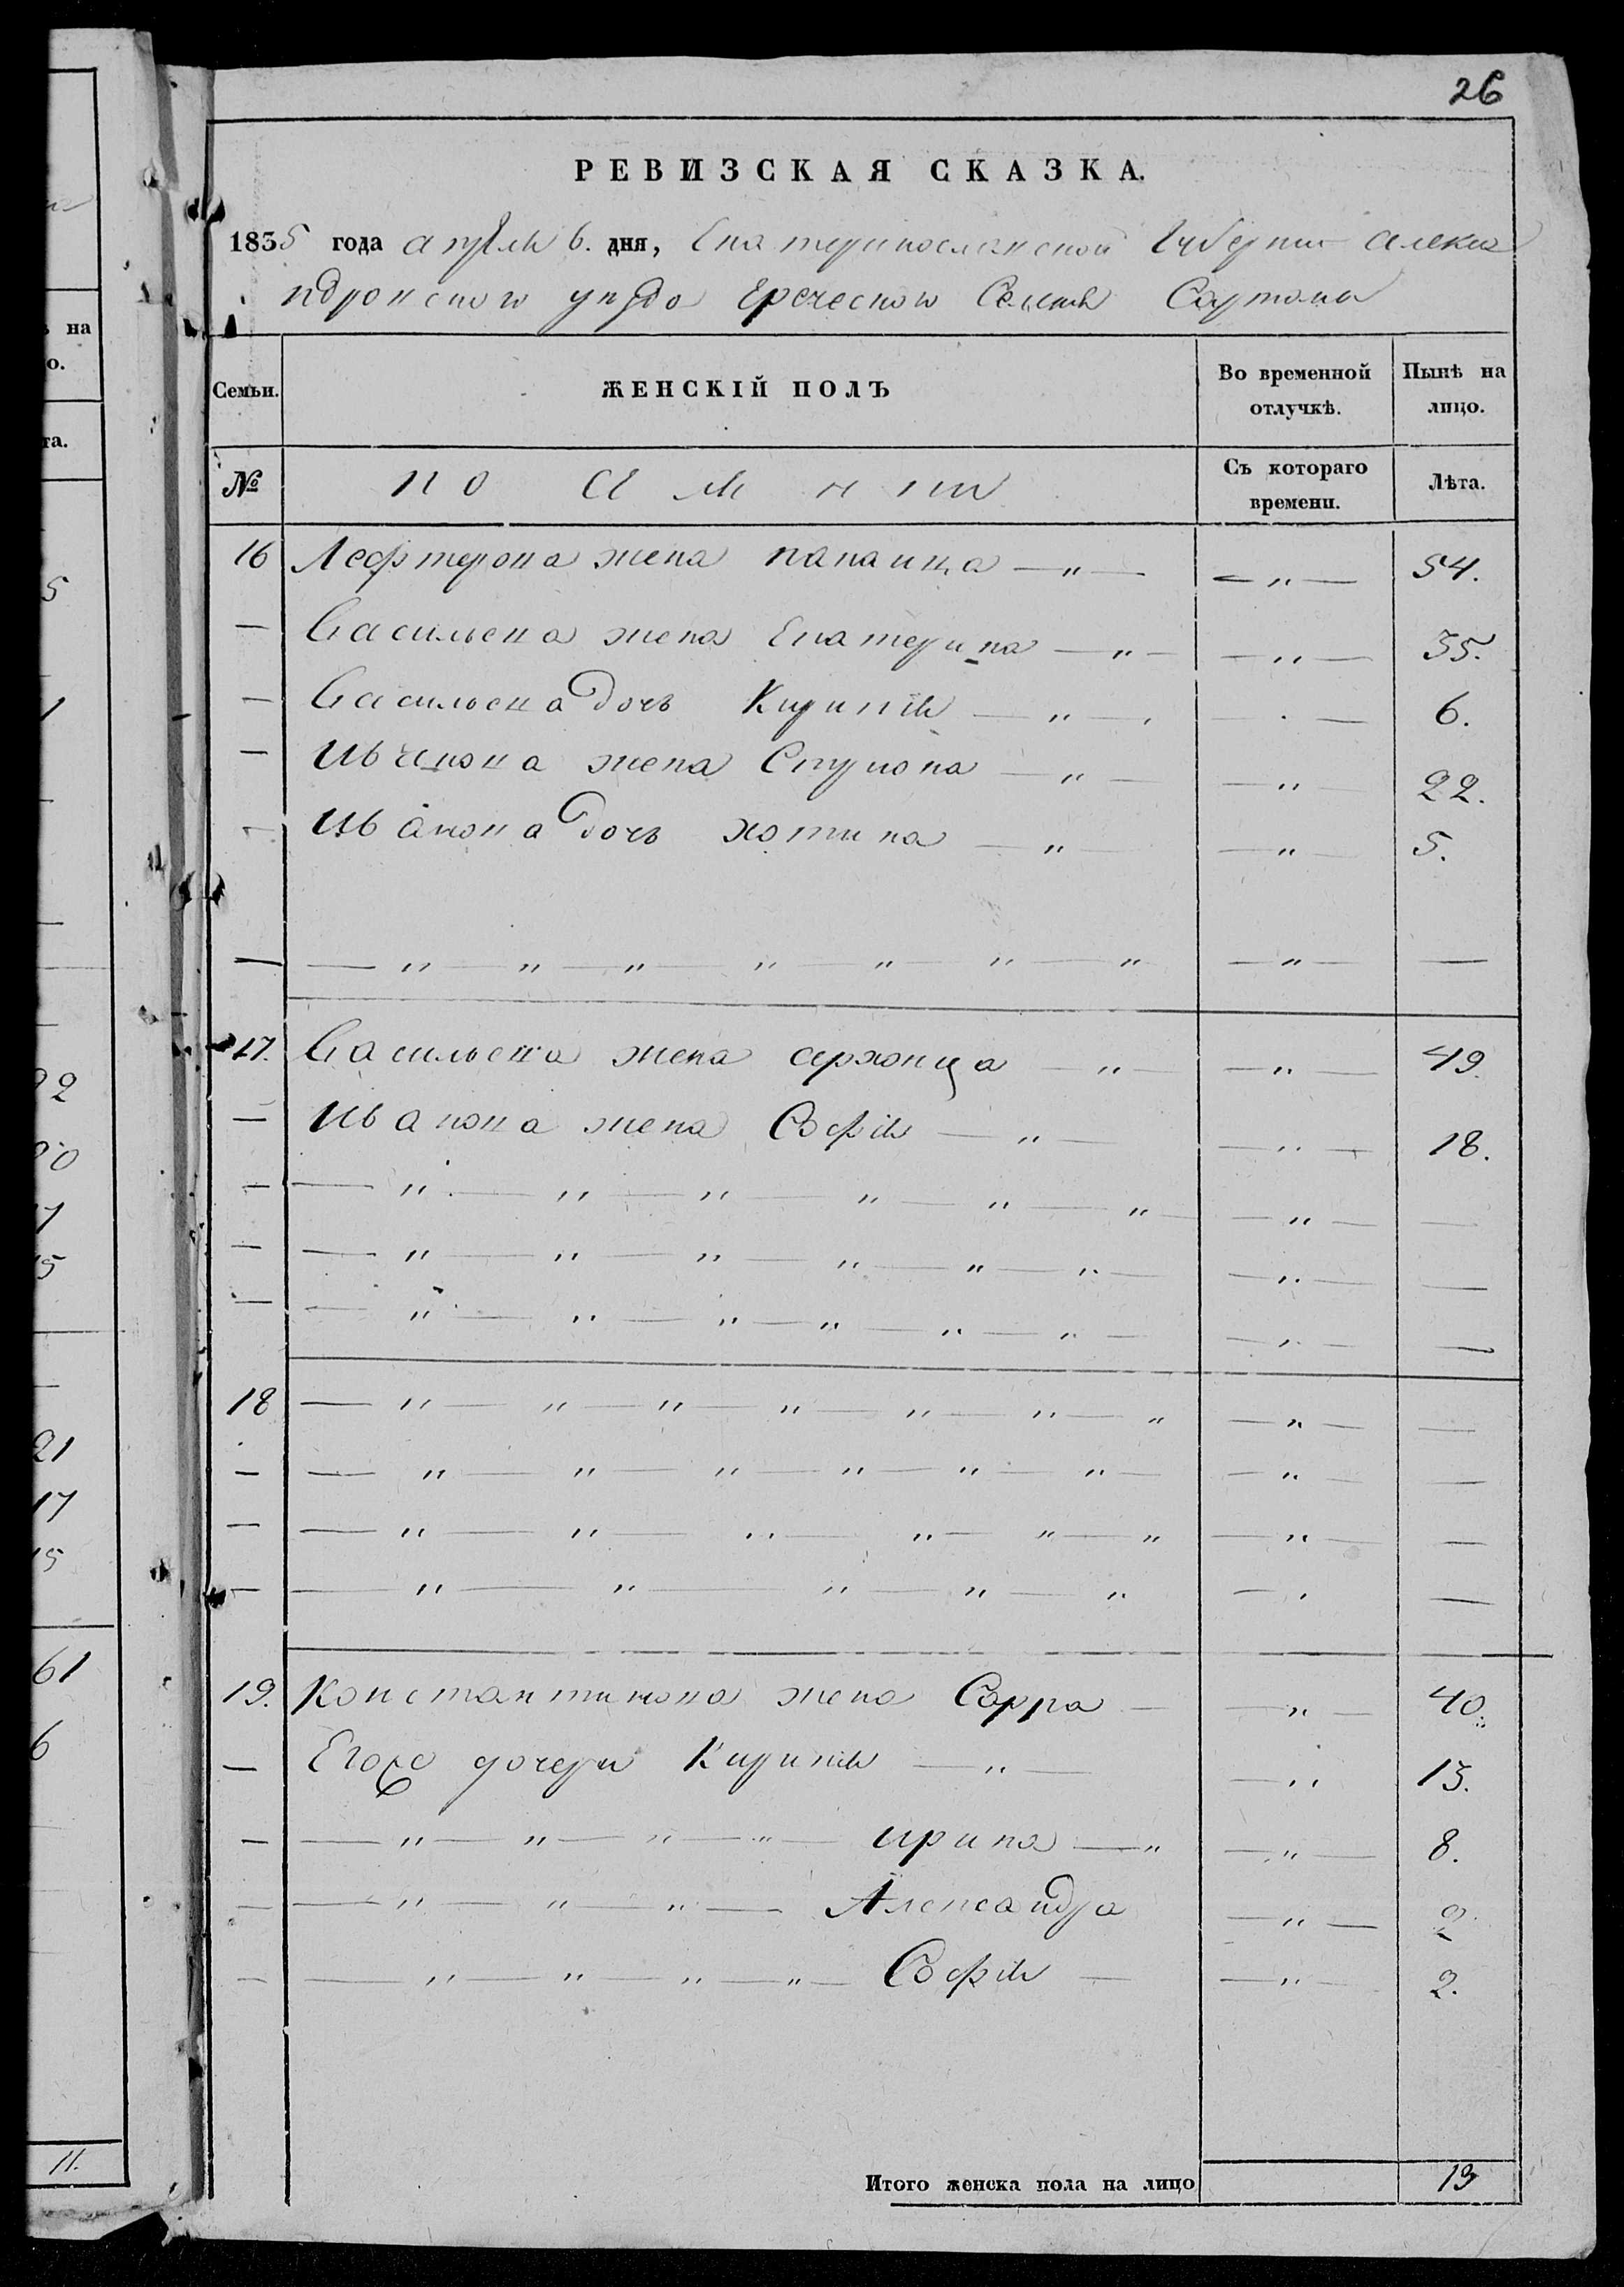 26
РЕВИЗСКАЯ СКАЗКА.
1835 года апреля 6. дня, Екатеринославской Губернии Алекса
ндровского уезда Греческого Селения Сартаны
Семьи. ЖЕНСКІЙ ПОЛЪ Во временной отлучкѣ. Нынѣ на лицо.
№ Съ котораго времени. Лѣта.
16 Лефтерова жена папаица —„— —„— 54.
— Васильева жена Екатерина —„— —„— 35.
— Васильева дочь Кирикія —„— — . — 6.
— Иванова жена —„— —„— 22.
— Иванова дочь хотина —„— —„— 5.
— —„—„—„—„—„—„—„ —„— —
17. Васильева жена архонца —„— —„— 49.
— Иванова жена Софія —„— —„— 18.
— —„—„—„—„—„—„— —„— —
— —„—„—„—„—„—„— —„— —
— —„—„—„—„—„—„— —„— —
18 —„—„—„—„—„—„—„ —„— —
— —„—„—„—„—„—„— —„— —
— —„—„—„—„—„—„ —„— —
— —„—„—„—„—„ —„ —
19. Константинова жена Сарра — —„— 40.
— Егоже дочери —„— —„ 13.
— —„—„—„—„— ирина —„ —„— 8.
— —„—„—„— Александра —„— 2
— —„—„—„—„— Софія — —„— 2.
Итого женска пола на лицо 13
на
о.
та.
5
1
21
17
15
61
6
11.